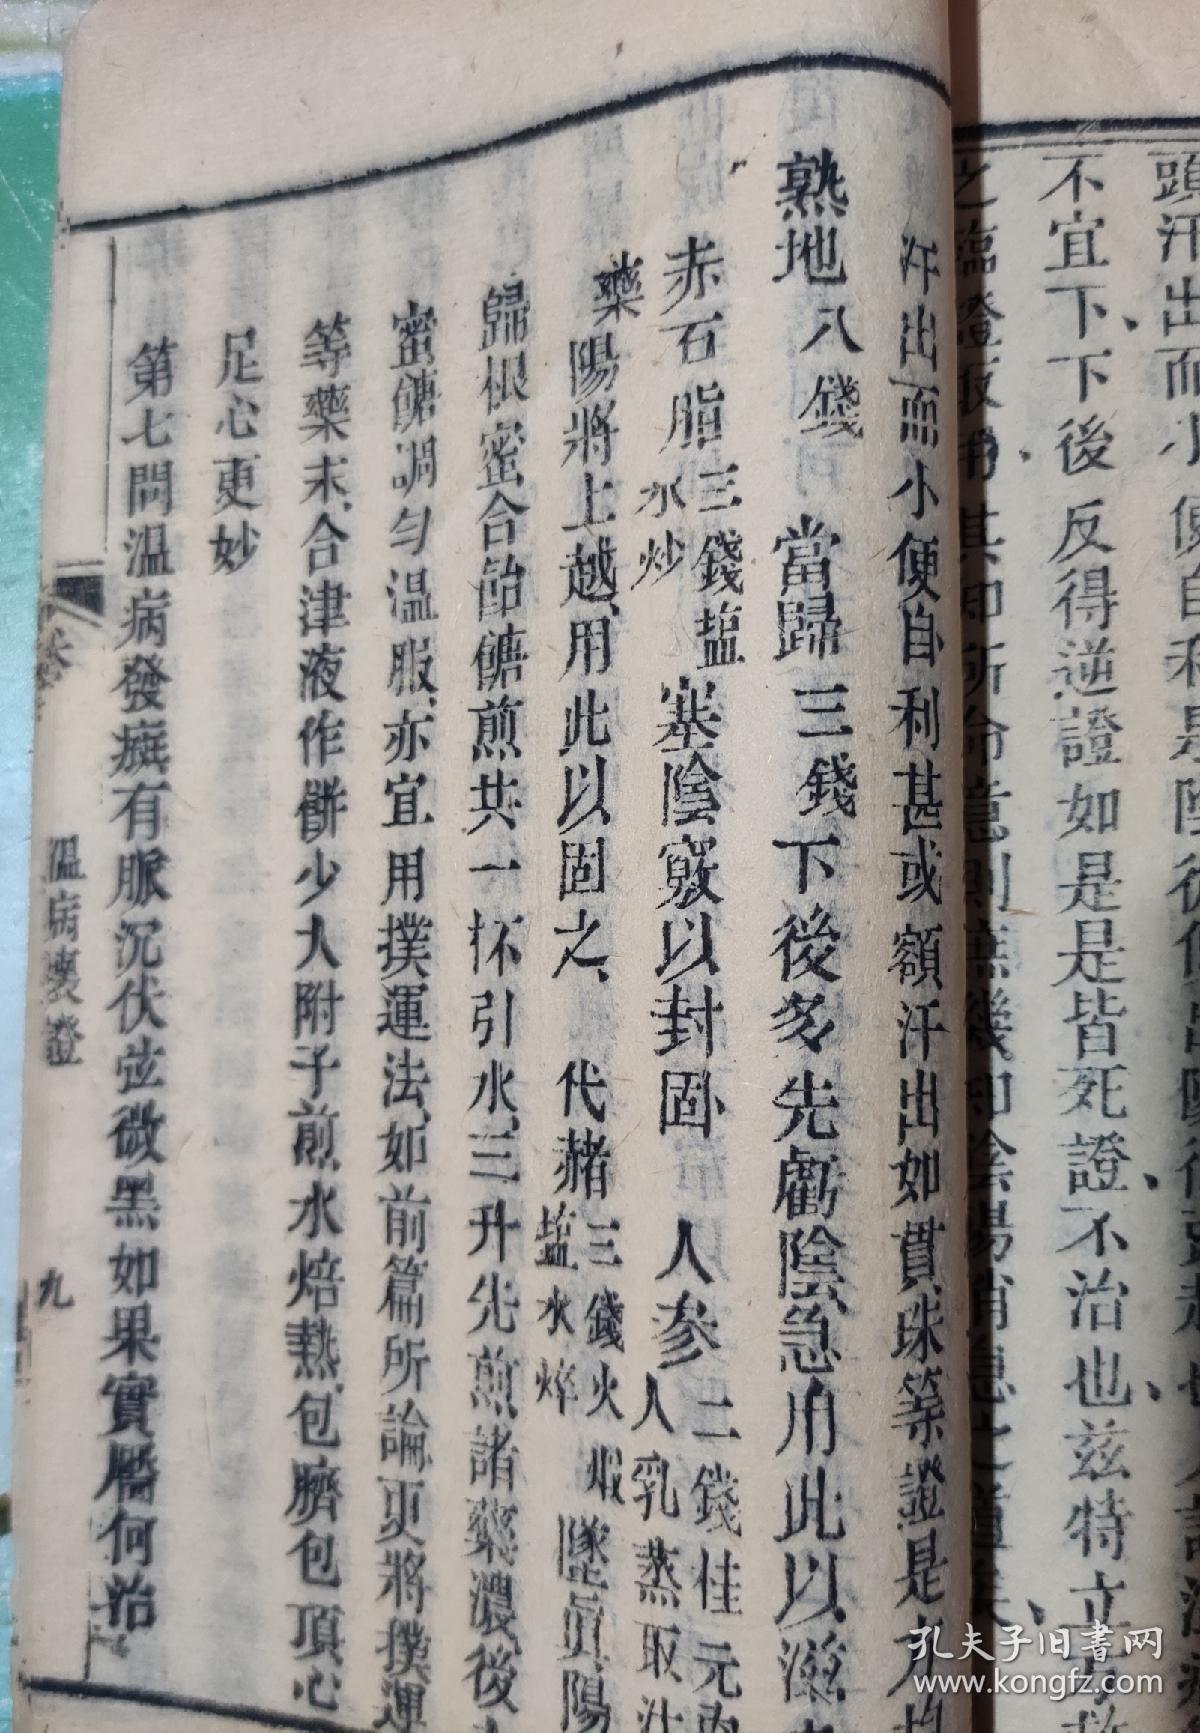 頭汗出而小便自利是陰
不宜下下後反得逆證如是是皆死證不治也玆特立
之臨證
汗出而小便自利甚或額汗出如貫珠等證是
熟地八錢 當歸三錢下後多先虧陰急用此以滋
赤石脂三錢塩水炒 塞陰竅以封固 人參二錢桂元肉人乳蒸取汁
藥陽將上越用此以固之 代赭三錢火煆塩水焠 墜眞陽
歸根蜜合飴餹煎共一杯引水三升先煎諸藥濃後
蜜餹調勻温服亦宜用撲運法如前篇所論更將撲運
等藥末合津液作餅少入附子煎水焙熱包臍包頂心
足心更妙
第七問温病發癍有脈沉伏弦微黑如果實靨何治
温病壞證
九
孔夫子旧書网
www.kongfz.com